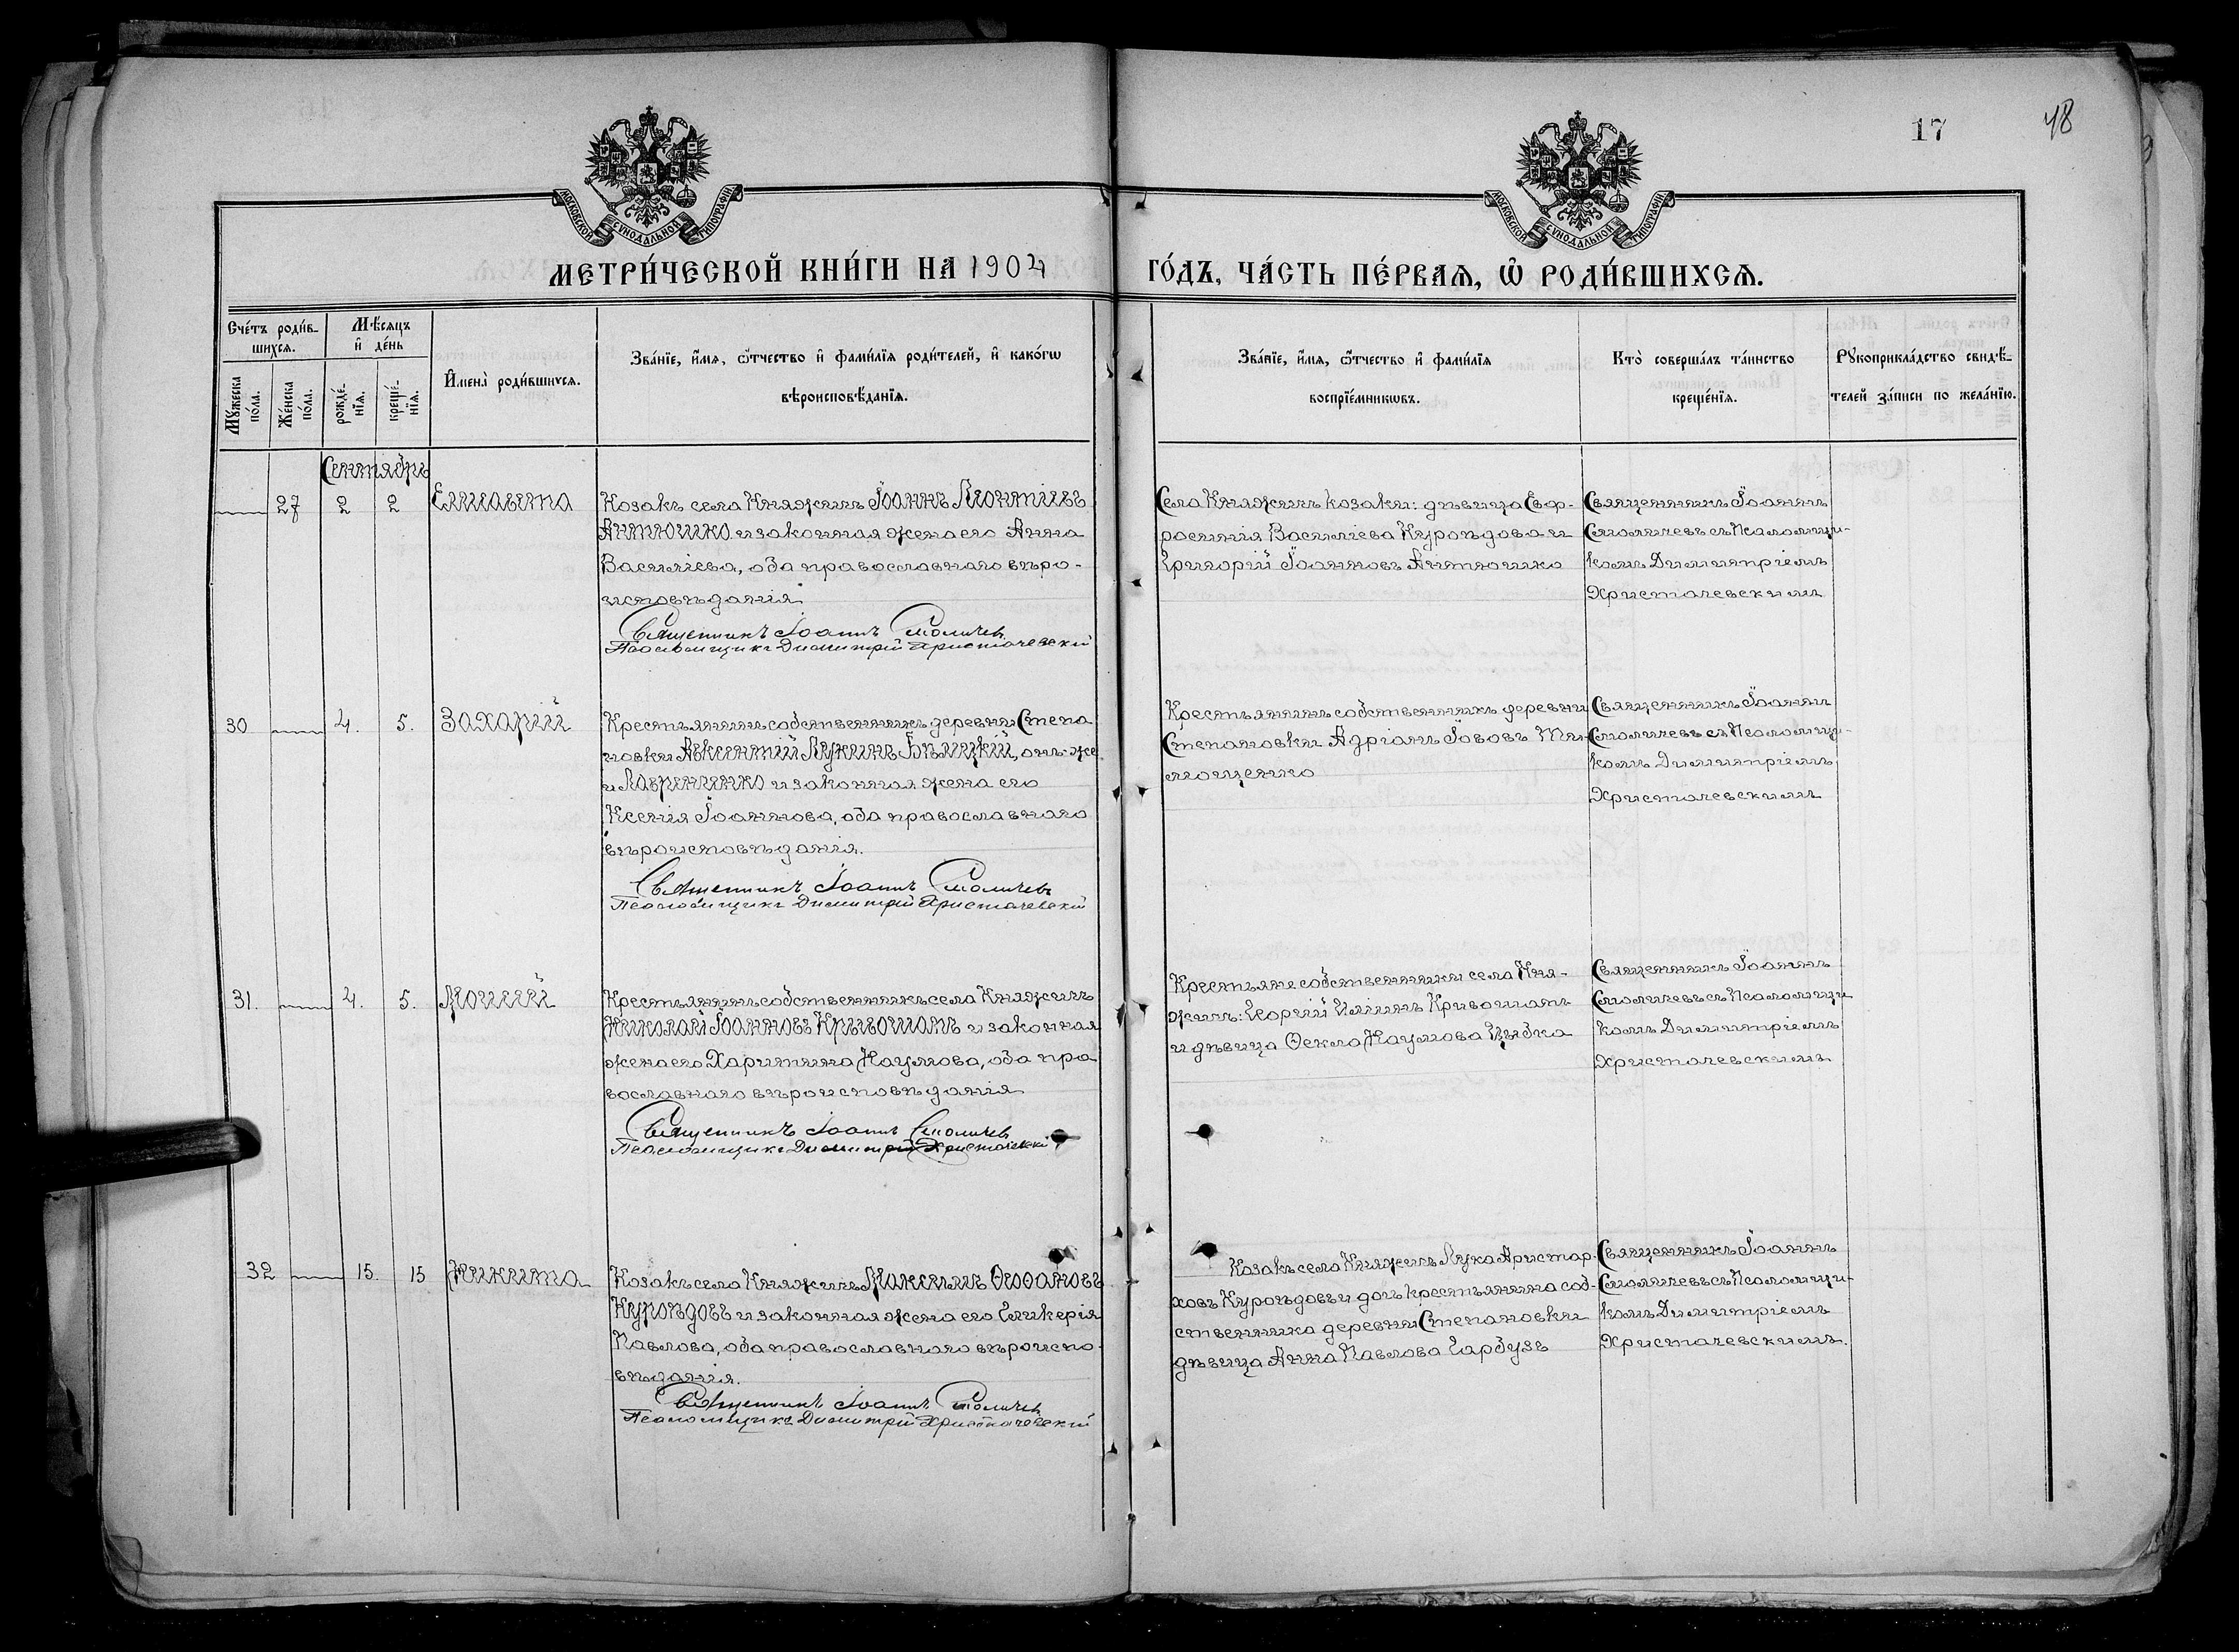 17
48
МОСКОВСКОЙ СѴНОДАЛЬНОЙ ТИПОГРАФІИ
МОСКОВСКОЙ СѴНОДАЛЬНОЙ ТИПОГРАФІИ
МЕТРИ́ЧЕСКОЙ КНИ́ГИ НА 1904
ГО́ДЪ, ЧА́СТЬ ПЕ́РВАЯ, Ѡ РОДИ́ВШИХСЯ.
Сче́тъ роди́в-
шихся.
Мѣ́сяцъ
и де́нь
Мꙋ́жеска
по́ла.
Же́нска
по́ла.
рожде́-
нїя.
креще́-
нїя.
Имена̀ роди́вшихся.
Зва́нїе, и́мя, ѻ́тчество и фами́лїя роди́телей, и како́гѡ
вѣроисповѣ́данїя.
Зва́нїе, и́мя, ѻ́тчество и фами́лїя
воспрїе́мникѡвъ.
Кто̀ соверша́лъ та́инство
креще́нїя.
Рꙋкоприкла́дство свидѣ́-
телей за́писи по жела́нїю.
Сентябрь
27 2 2 Елисавета
Козакъ села Княжичъ Іоаннъ Леонтіевъ
Антюшко и законная жена его Анна
Василіева, оба православнаго вѣро-
исповѣданія
Священникъ Іоаннъ Смоличевъ
Псаломщикъ Димитрій Христачевскій
Села Княжичъ козаки: дѣвица Евф-
росинія Василіева Куроѣдова и
Григорій Іоанновъ Антюшко
Священникъ Іоаннъ
Смоличевъ съ Псаломщи-
комъ Димитріемъ
Христачевскимъ
30 4. 5. Захарій
Крестьянинъ собственникъ деревни Степа
новки Авксентій Лукинъ Бѣлицкій, онъ-же
и Лавриненко и законная жена его
Ксенія Іоаннова, оба православнаго
вѣроисповѣданія.
Священникъ Іоаннъ Смоличевъ
Псаломщикъ Димитрій Христачевскій
Крестьянинъ собственникъ деревни
Степановки Адріанъ Іововъ Ти-
мощенко
Священникъ Іоаннъ
Смоличевъ съ Псаломщи-
комъ Димитріемъ
Христачевскимъ
31. 4. 5. Моисей
Крестьянинъ собственникъ села Княжичъ
Николай Іоанновъ Кривошапъ и законная
жена его Харитина Наумова, оба пра
вославнаго вѣроисповѣданія
Священникъ Іоаннъ Смоличевъ
Псаломщикъ Димитрій Христачевскій
Крестьяне собственники села Кня-
жичъ: Георгій Иліинъ Кривошапъ
и дѣвица Ѳекла Наумова Цыбка
Священникъ Іоаннъ
Смоличевъ съ Псаломщи
комъ Димитріемъ
Христачевскимъ
32 15. 15 Никита
Козакъ села Княжичъ Максимъ Ѳеофановъ
Куроѣдовъ и законная жена его Гликерія
Павлова, оба православнаго вѣроиспо-
вѣданія.
Священникъ Іоаннъ Смоличевъ
Псаломщикъ Димитрій Христачевскій
Козакъ села Княжичъ Лука Аристар-
ховъ Куроѣдовъ и дочь крестьянина соб-
ственника деревни Степановки
дѣвица Анна Павлова Гарбузъ
Священникъ Іоаннъ
Смоличевъ съ Псаломщи-
комъ Димитріемъ
Христачевскимъ.